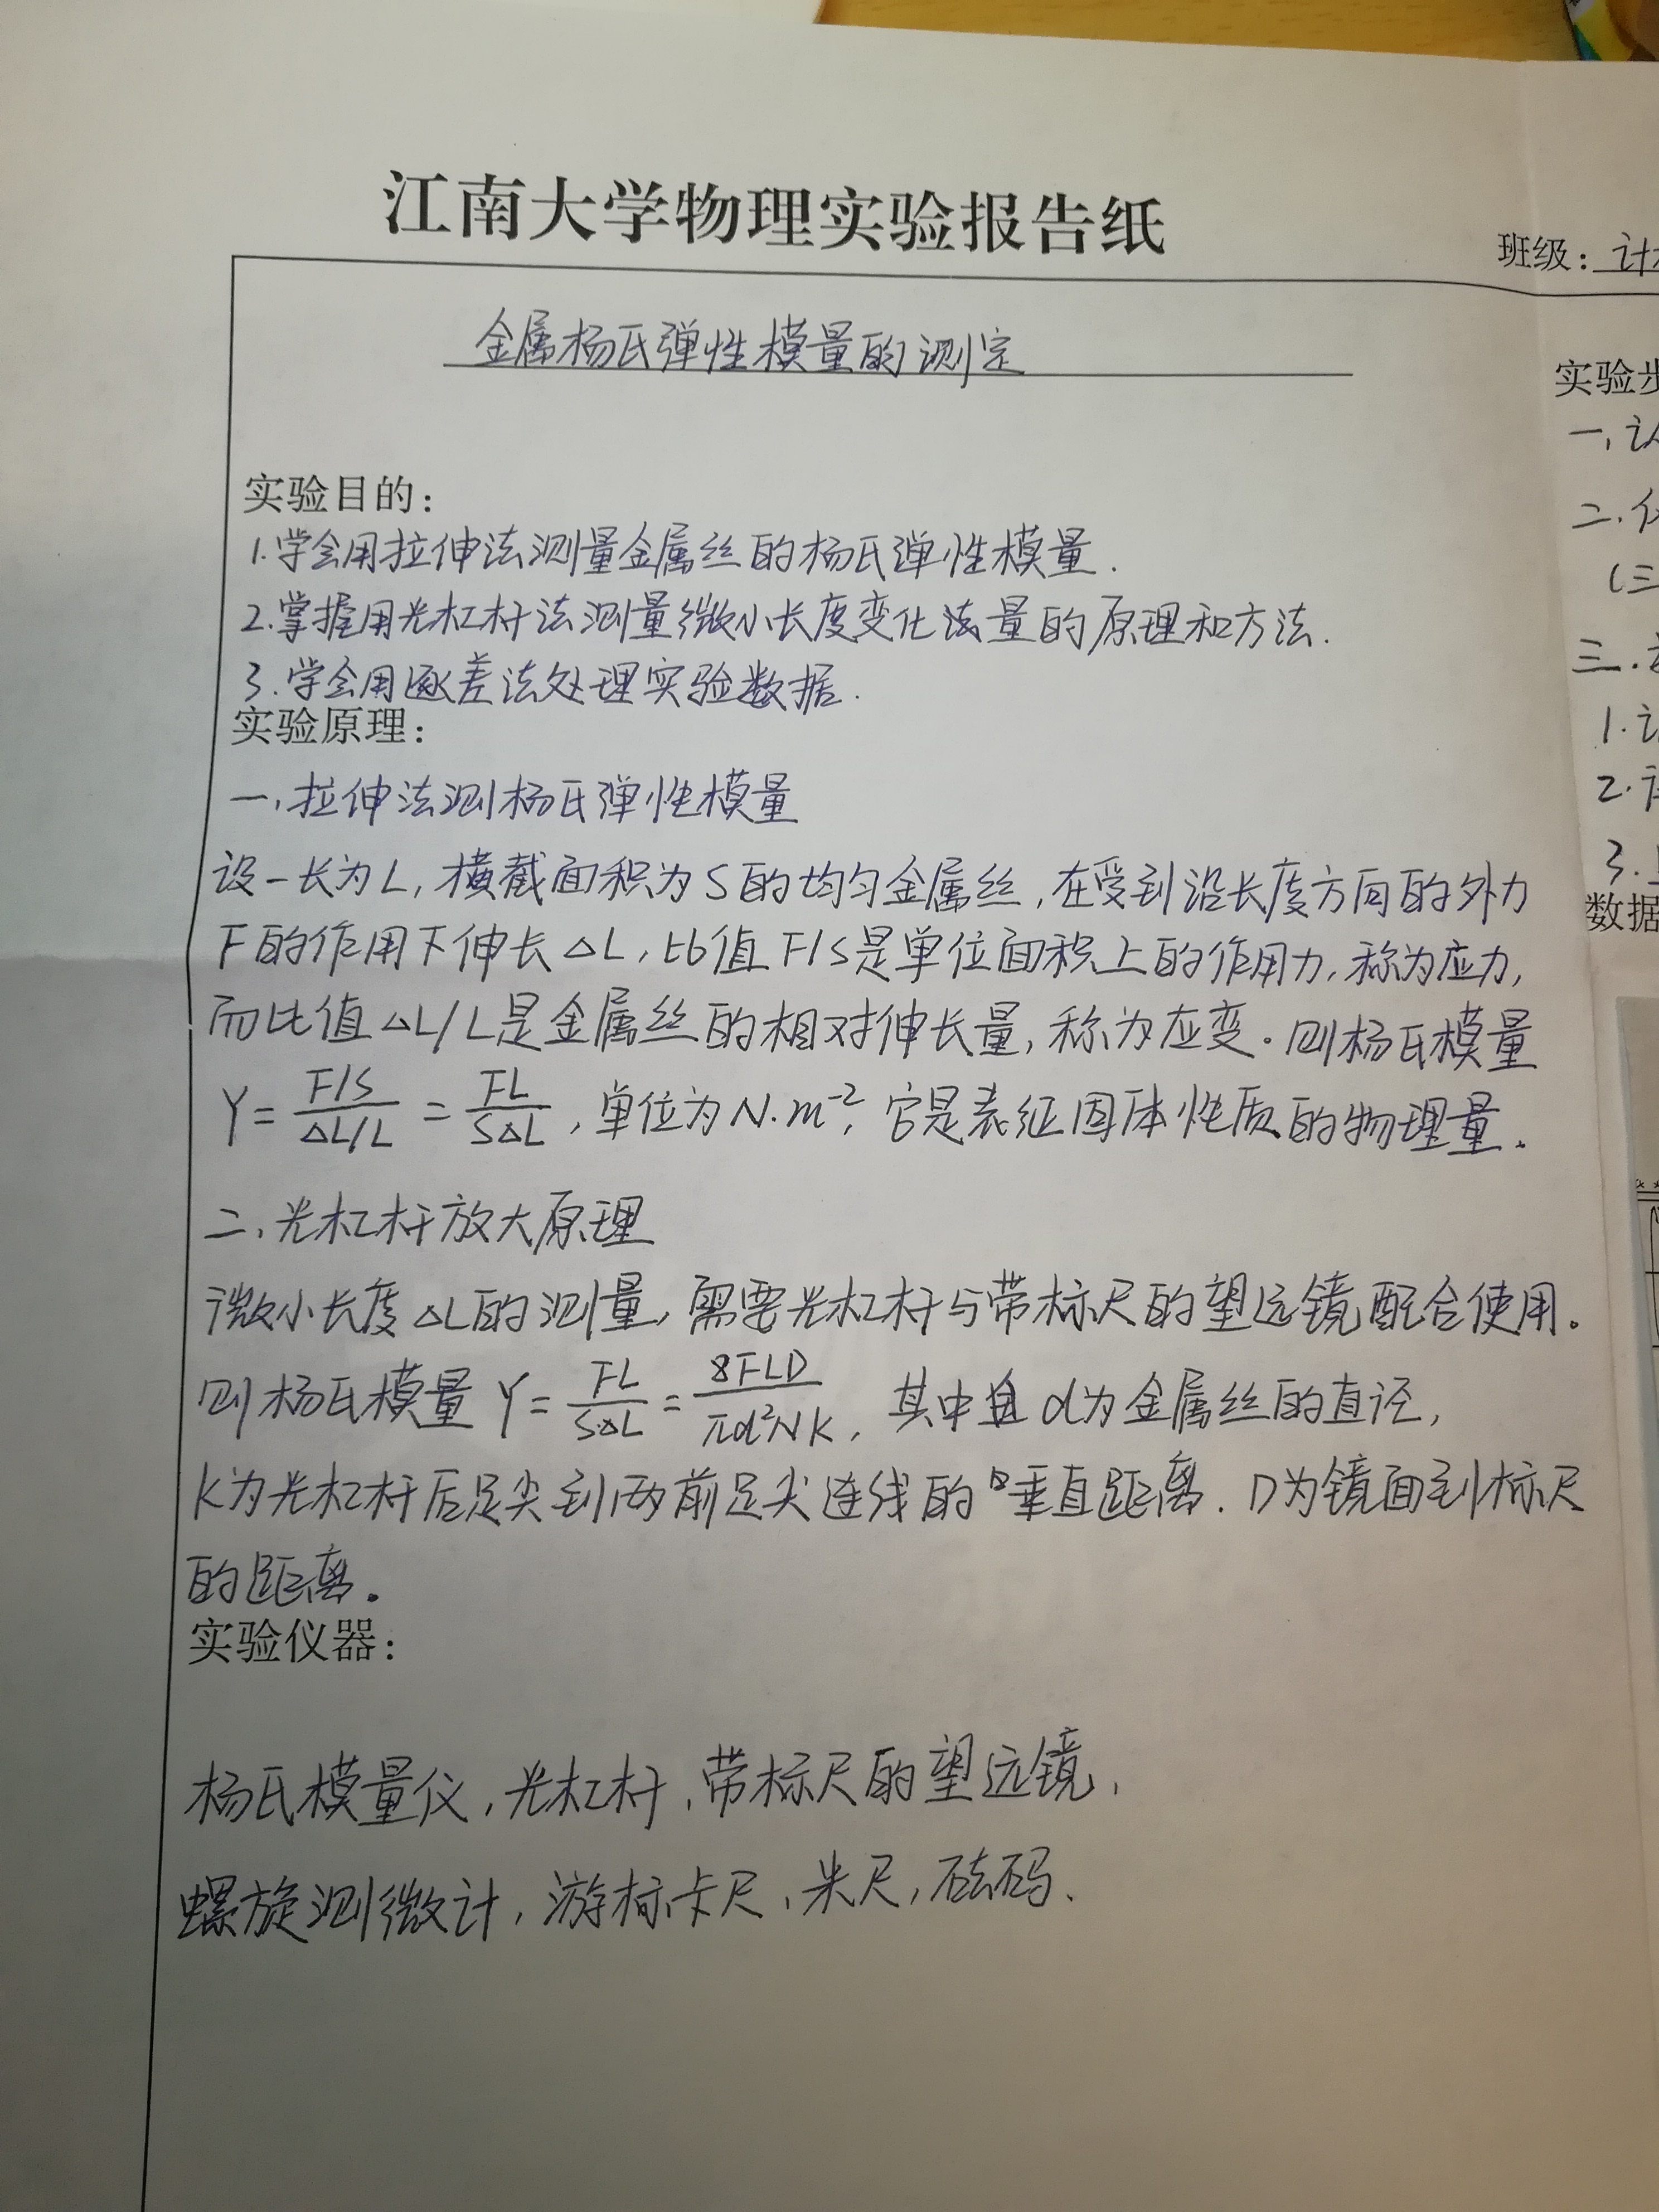 江南大学物理实验报告纸
班级：计
金属杨氏弹性模量的测定
实验目的：
1.学会用拉伸法测量金属丝的杨氏弹性模量.
2.掌握用光杠杆法测量微小长度变化法量的原理和方法.
3.学会用逐差法处理实验数据.
实验原理：
一,拉伸法测杨氏弹性模量
设一长为L,横截面积为S的均匀金属丝,在受到沿长度方向的外力
F的作用下伸长△L,比值F/S是单位面积上的作用力,称为应力,
而比值△L/L是金属丝的相对伸长量,称为应变。则杨氏模量
Y=(F/S)/(△L/L)=FL/(S△L),单位为N·m⁻²,它是表征固体性质的物理量.
二、光杠杆放大原理
微小长度△L的测量,需要光杠杆与带标尺的望远镜配合使用。
则杨氏模量Y=FL/(S△L)=8FLD/(πd²NK),其中 d为金属丝的直径,
K为光杠杆后足尖到两前足尖连线的垂直距离.D为镜面到标尺
的距离。
实验仪器：
杨氏模量仪,光杠杆,带标尺的望远镜,
螺旋测微计,游标卡尺、米尺,砝码、
实验步
一,认
二.仪
(三
三.
1.
2.
3.
数据